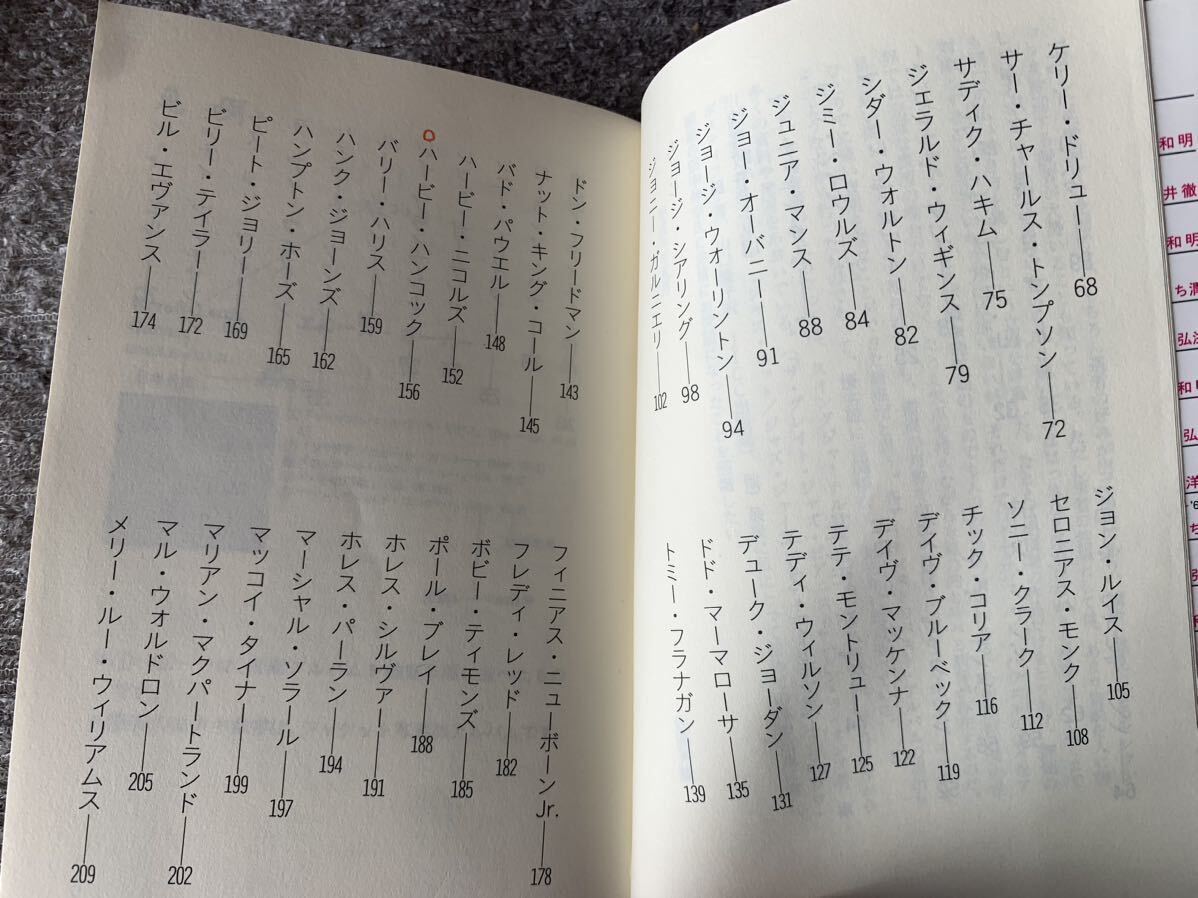 ケリー・ドリュー――68
サー・チャールス・トンプソン――72
サディク・ハキム――75
ジェラルド・ウィギンス――79
シダー・ウォルトン――82
ジミー・ロウルズ――84
ジュニア・マンス――88
ジョー・オーバニー――91
ジョージ・ウォーリントン――94
ジョージ・シアリング――98
ジョニー・ガルニエリ――102
ジョン・ルイス――105
セロニアス・モンク――108
ソニー・クラーク――112
チック・コリア――116
デイヴ・ブルーベック――119
デイヴ・マッケンナ――122
テテ・モントリュー――125
テディ・ウィルソン――127
デューク・ジョーダン――131
ドド・マーマローサ――135
トミー・フラナガン――139
ドン・フリードマン――143
ナット・キング・コール――145
バド・パウエル――148
ハービー・ニコルズ――152
ハービー・ハンコック――156
バリー・ハリス――159
ハンク・ジョーンズ――162
ハンプトン・ホーズ――165
ピート・ジョリー――169
ビリー・テイラー――172
ビル・エヴァンス――174
フィニアス・ニューボーンJr.――178
フレディ・レッド――182
ボビー・ティモンズ――185
ポール・ブレイ――188
ホレス・シルヴァー――191
ホレス・パーラン――194
マーシャル・ソラール――197
マッコイ・タイナー――199
マリアン・マクパートランド――202
マル・ウォルドロン――205
メリー・ルー・ウィリアムス――209
和明
井徹
和明
ち潤
弘
和
弘
洋